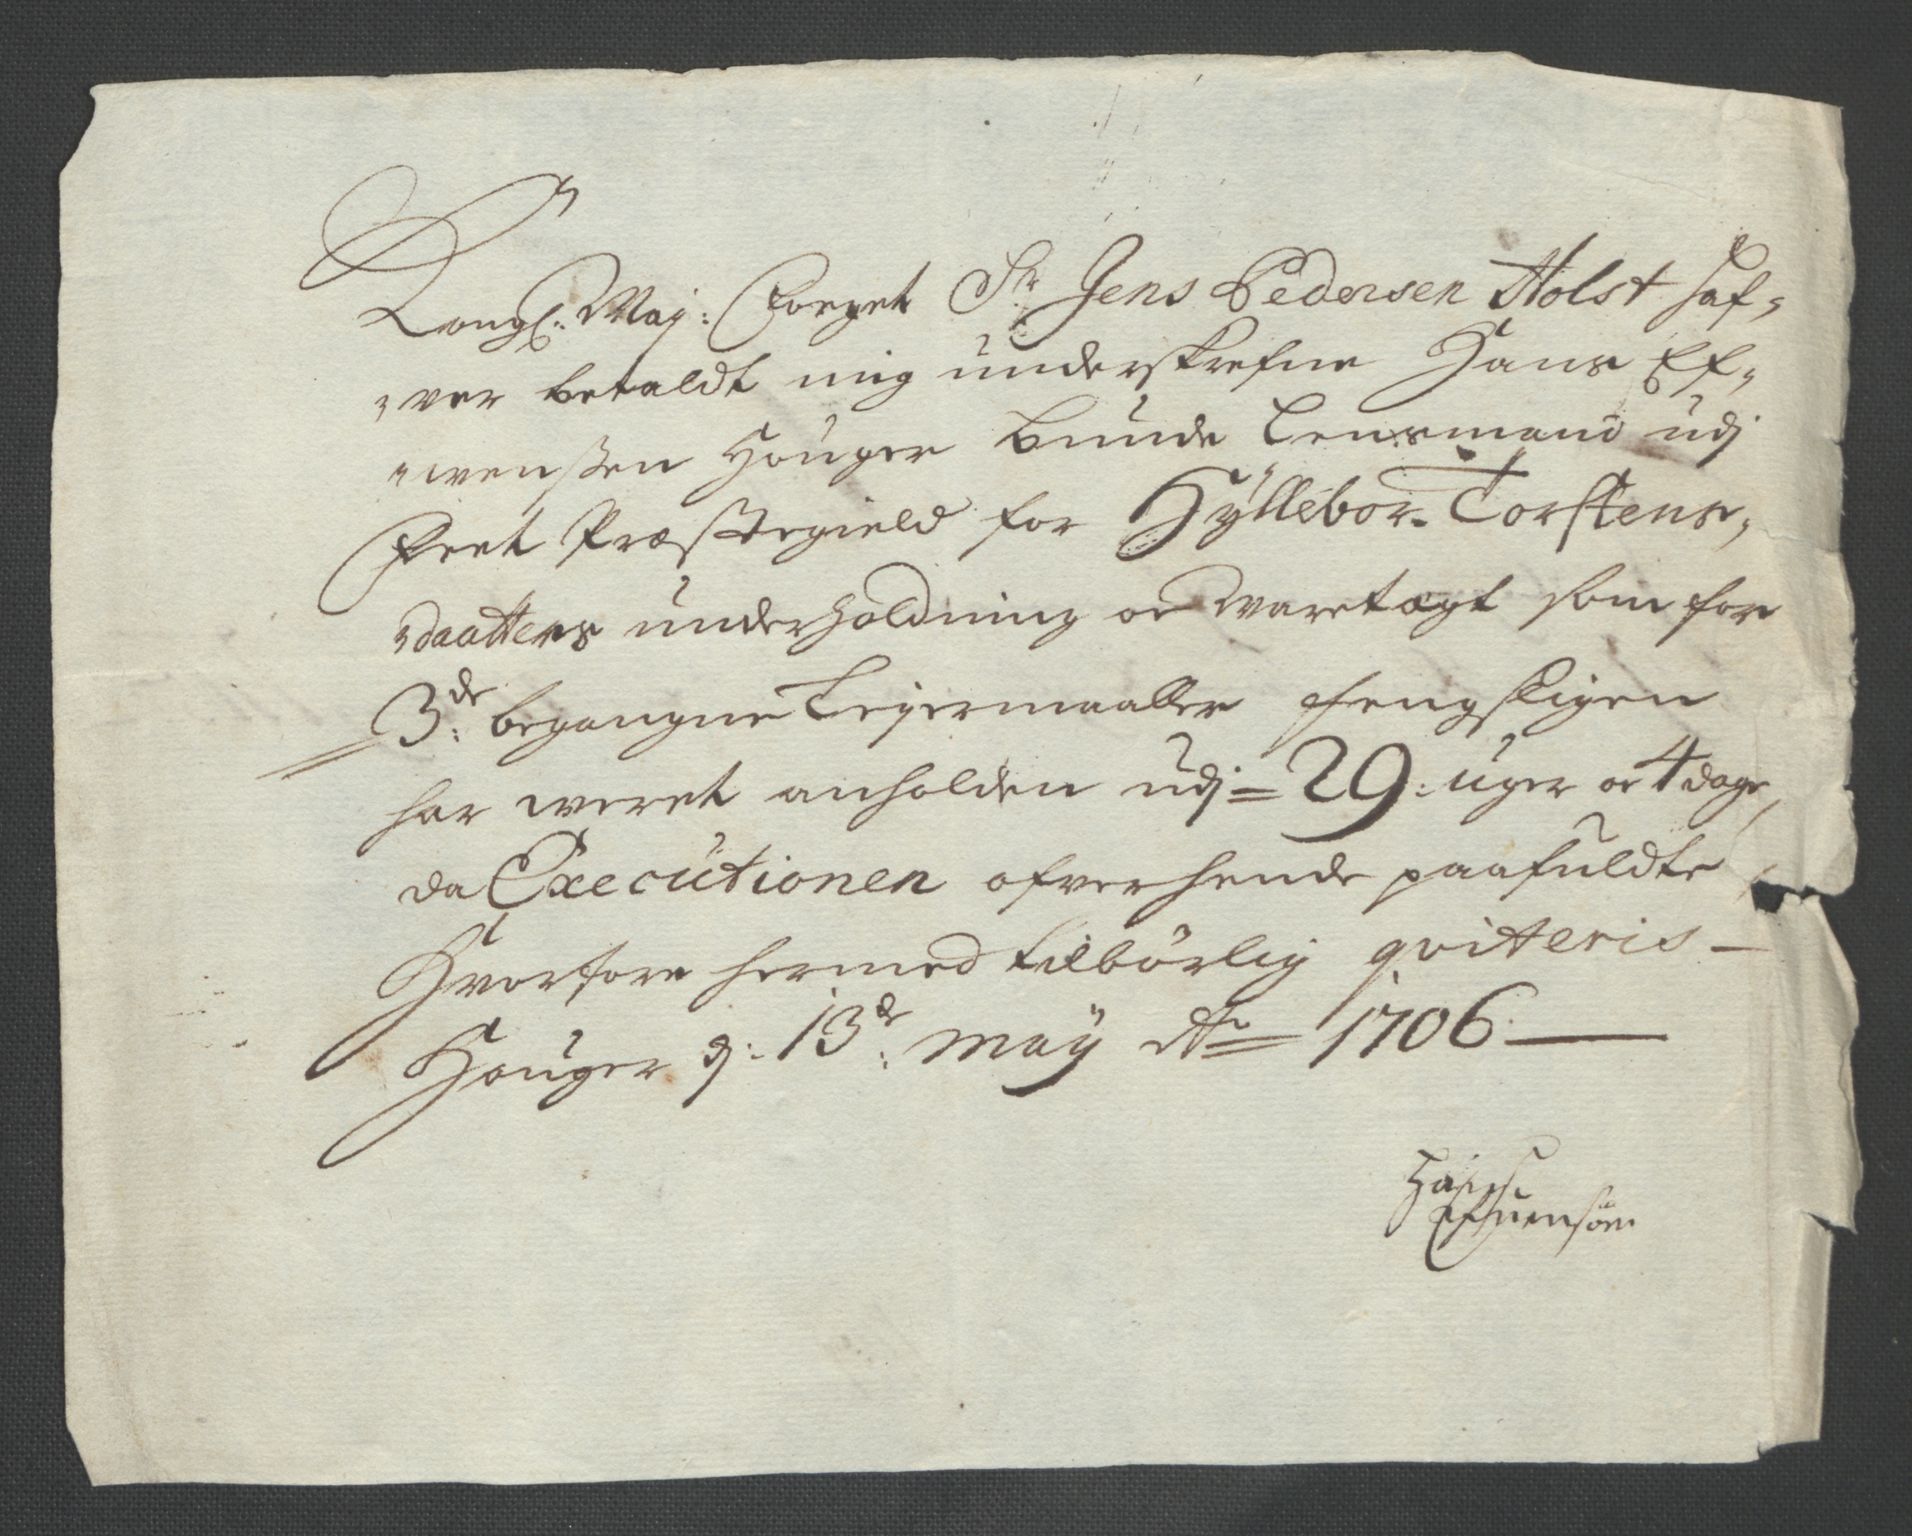 Kongl: Maj: Foeget Sr Jens Pedersen Holst haf-
-ver betaldt mig underskrefne Hans Ef-
-wenßen Houger bunde Lensmand udj
Eeet Præstegield for Hÿllebor Torstens-
-daatters underholdning oc waretægt som for
3de: begangne Lejermaaller fengsligen
har weret anholden udj = 29: uger oc 4 dage,
da Executionen ofver hende paafuldte,
Hvorfore hermed tilbørlig qviteris -
Houger d: 13de: Maÿ Ao = 1706 -
Hans
Efuensøn